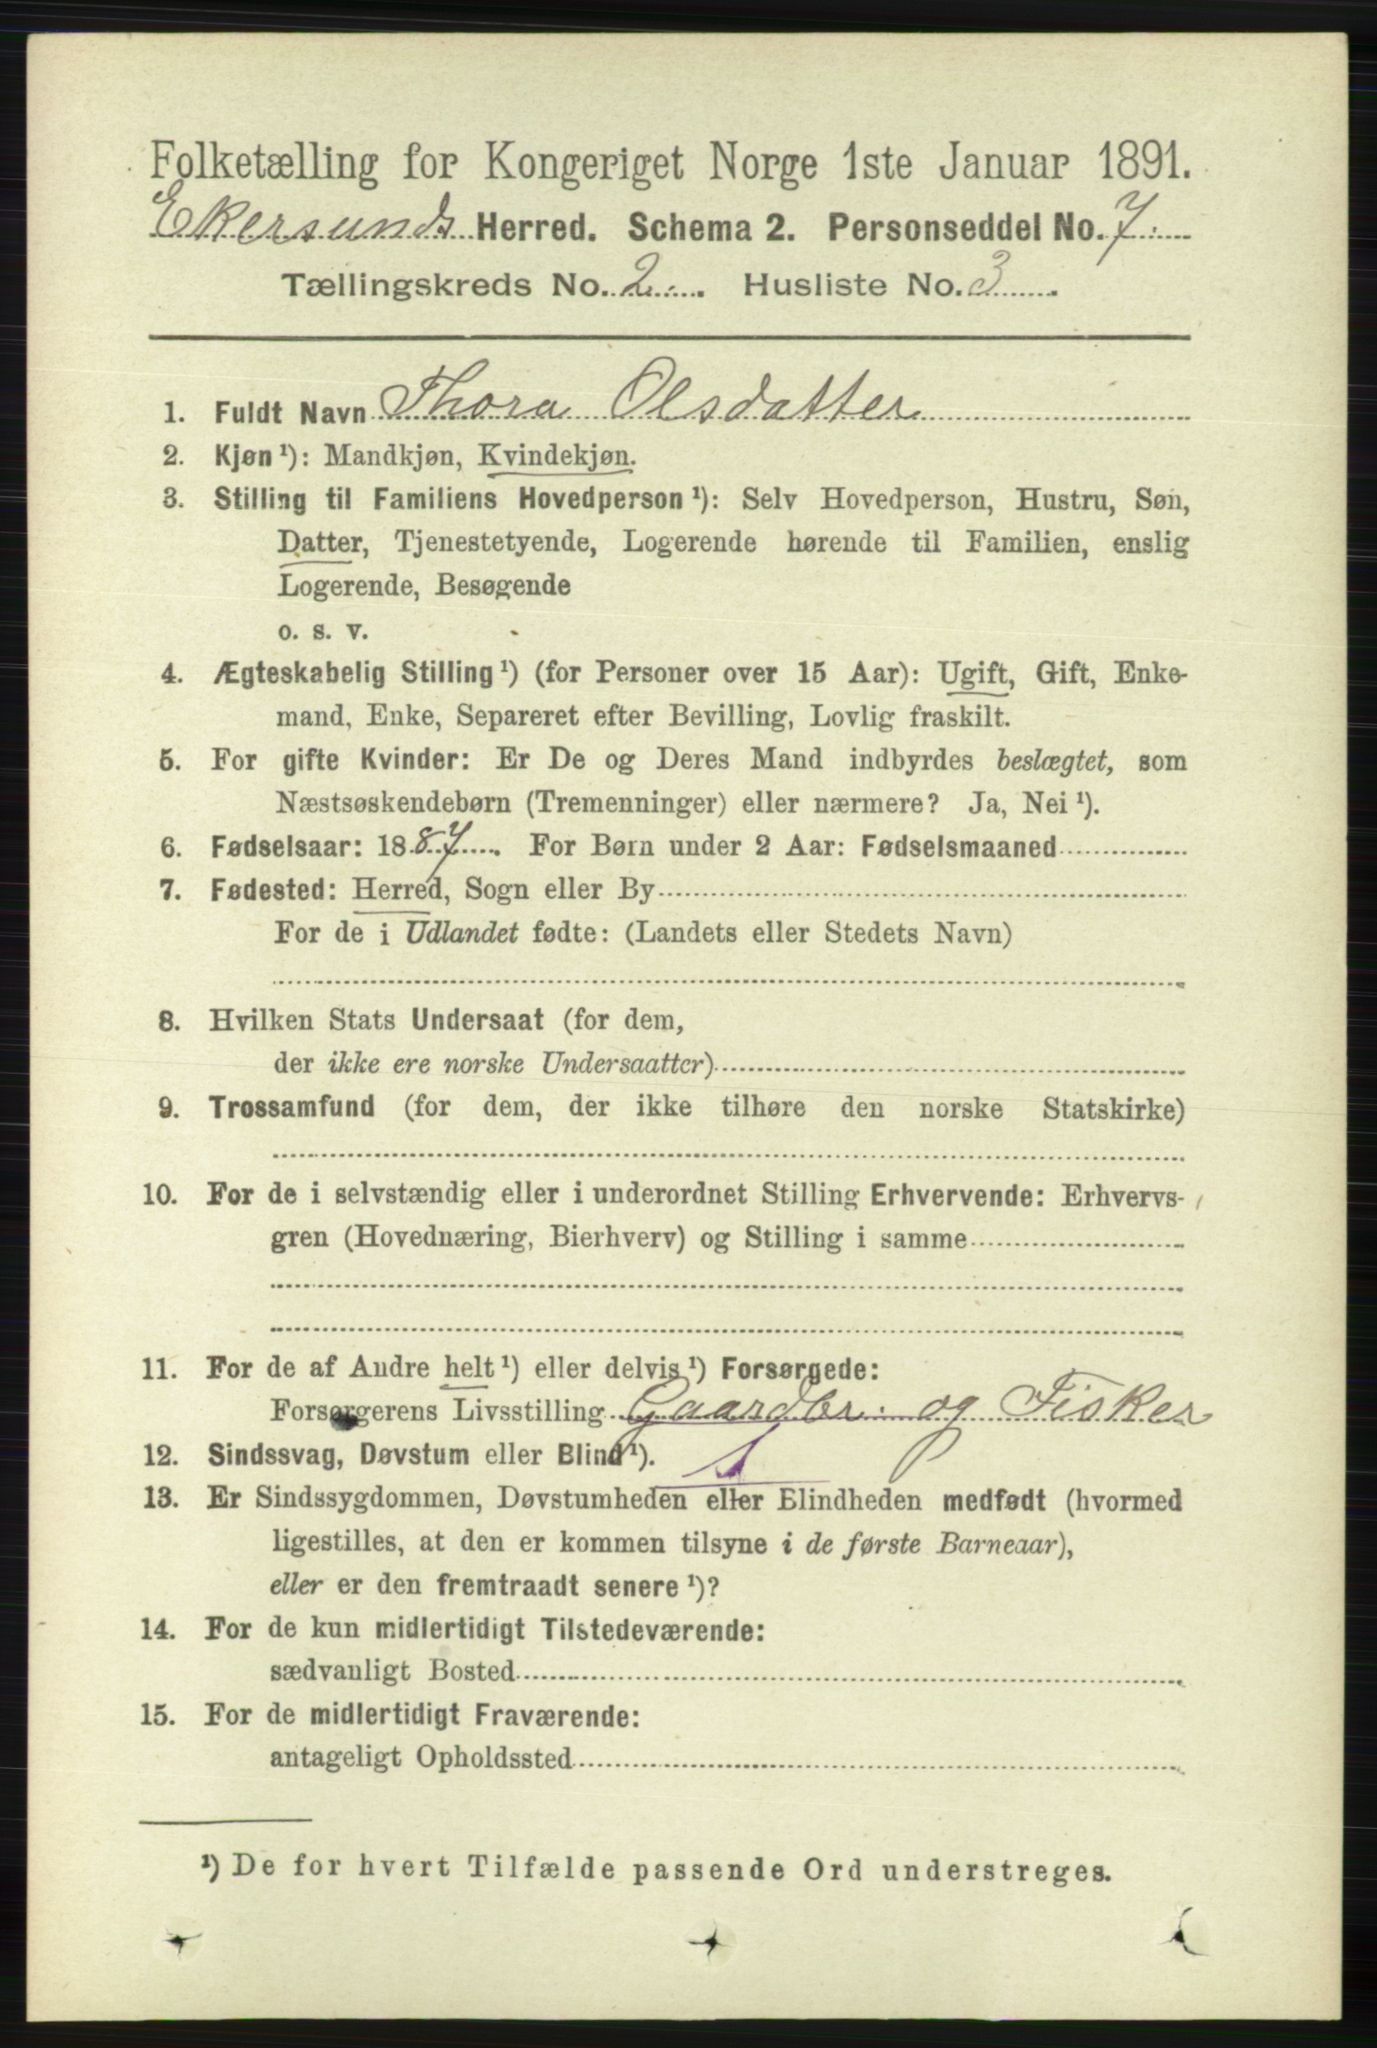 Folketælling for Kongeriget Norge 1ste Januar 1891.
Ekersunds Herred. Schema 2. Personseddel No. 7.
Tællingskreds No. 2. Husliste No. 3
1. Fuldt Navn Thora Olsdatter
2. Kjøn ¹): Mandkjøn, Kvindekjøn.
3. Stilling til Familiens Hovedperson ¹): Selv Hovedperson, Hustru, Søn,
Datter, Tjenestetyende, Logerende hørende til Familien, enslig
Logerende, Besøgende
o. s. v.
4. Ægteskabelig Stilling ¹) (for Personer over 15 Aar): Ugift, Gift, Enke-
mand, Enke, Separeret efter Bevilling, Lovlig fraskilt.
5. For gifte Kvinder: Er De og Deres Mand indbyrdes beslægtet, som
Næstsøskendebørn (Tremenninger) eller nærmere? Ja, Nei ¹).
6. Fødselsaar: 1887. For Børn under 2 Aar: Fødselsmaaned
7. Fødested: Herred, Sogn eller By
For de i Udlandet fødte: (Landets eller Stedets Navn)
8. Hvilken Stats Undersaat (for dem,
der ikke ere norske Undersaatter)
9. Trossamfund (for dem, der ikke tilhøre den norske Statskirke)
10. For de i selvstændig eller i underordnet Stilling Erhvervende: Erhvervs-
gren (Hovednæring, Bierhverv) og Stilling i samme
11. For de af Andre helt ¹) eller delvis ¹) Forsørgede:
Forsørgerens Livsstilling Gaardbr. og Fisker
12. Sindssvag, Døvstum eller Blind ¹).
13. Er Sindssygdommen, Døvstumheden eller Blindheden medfødt (hvormed
ligestilles, at den er kommen tilsyne i de første Barneaar),
eller er den fremtraadt senere ¹)?
14. For de kun midlertidigt Tilstedeværende:
sædvanligt Bosted
15. For de midlertidigt Fraværende:
antageligt Opholdssted
¹) De for hvert Tilfælde passende Ord understreges.